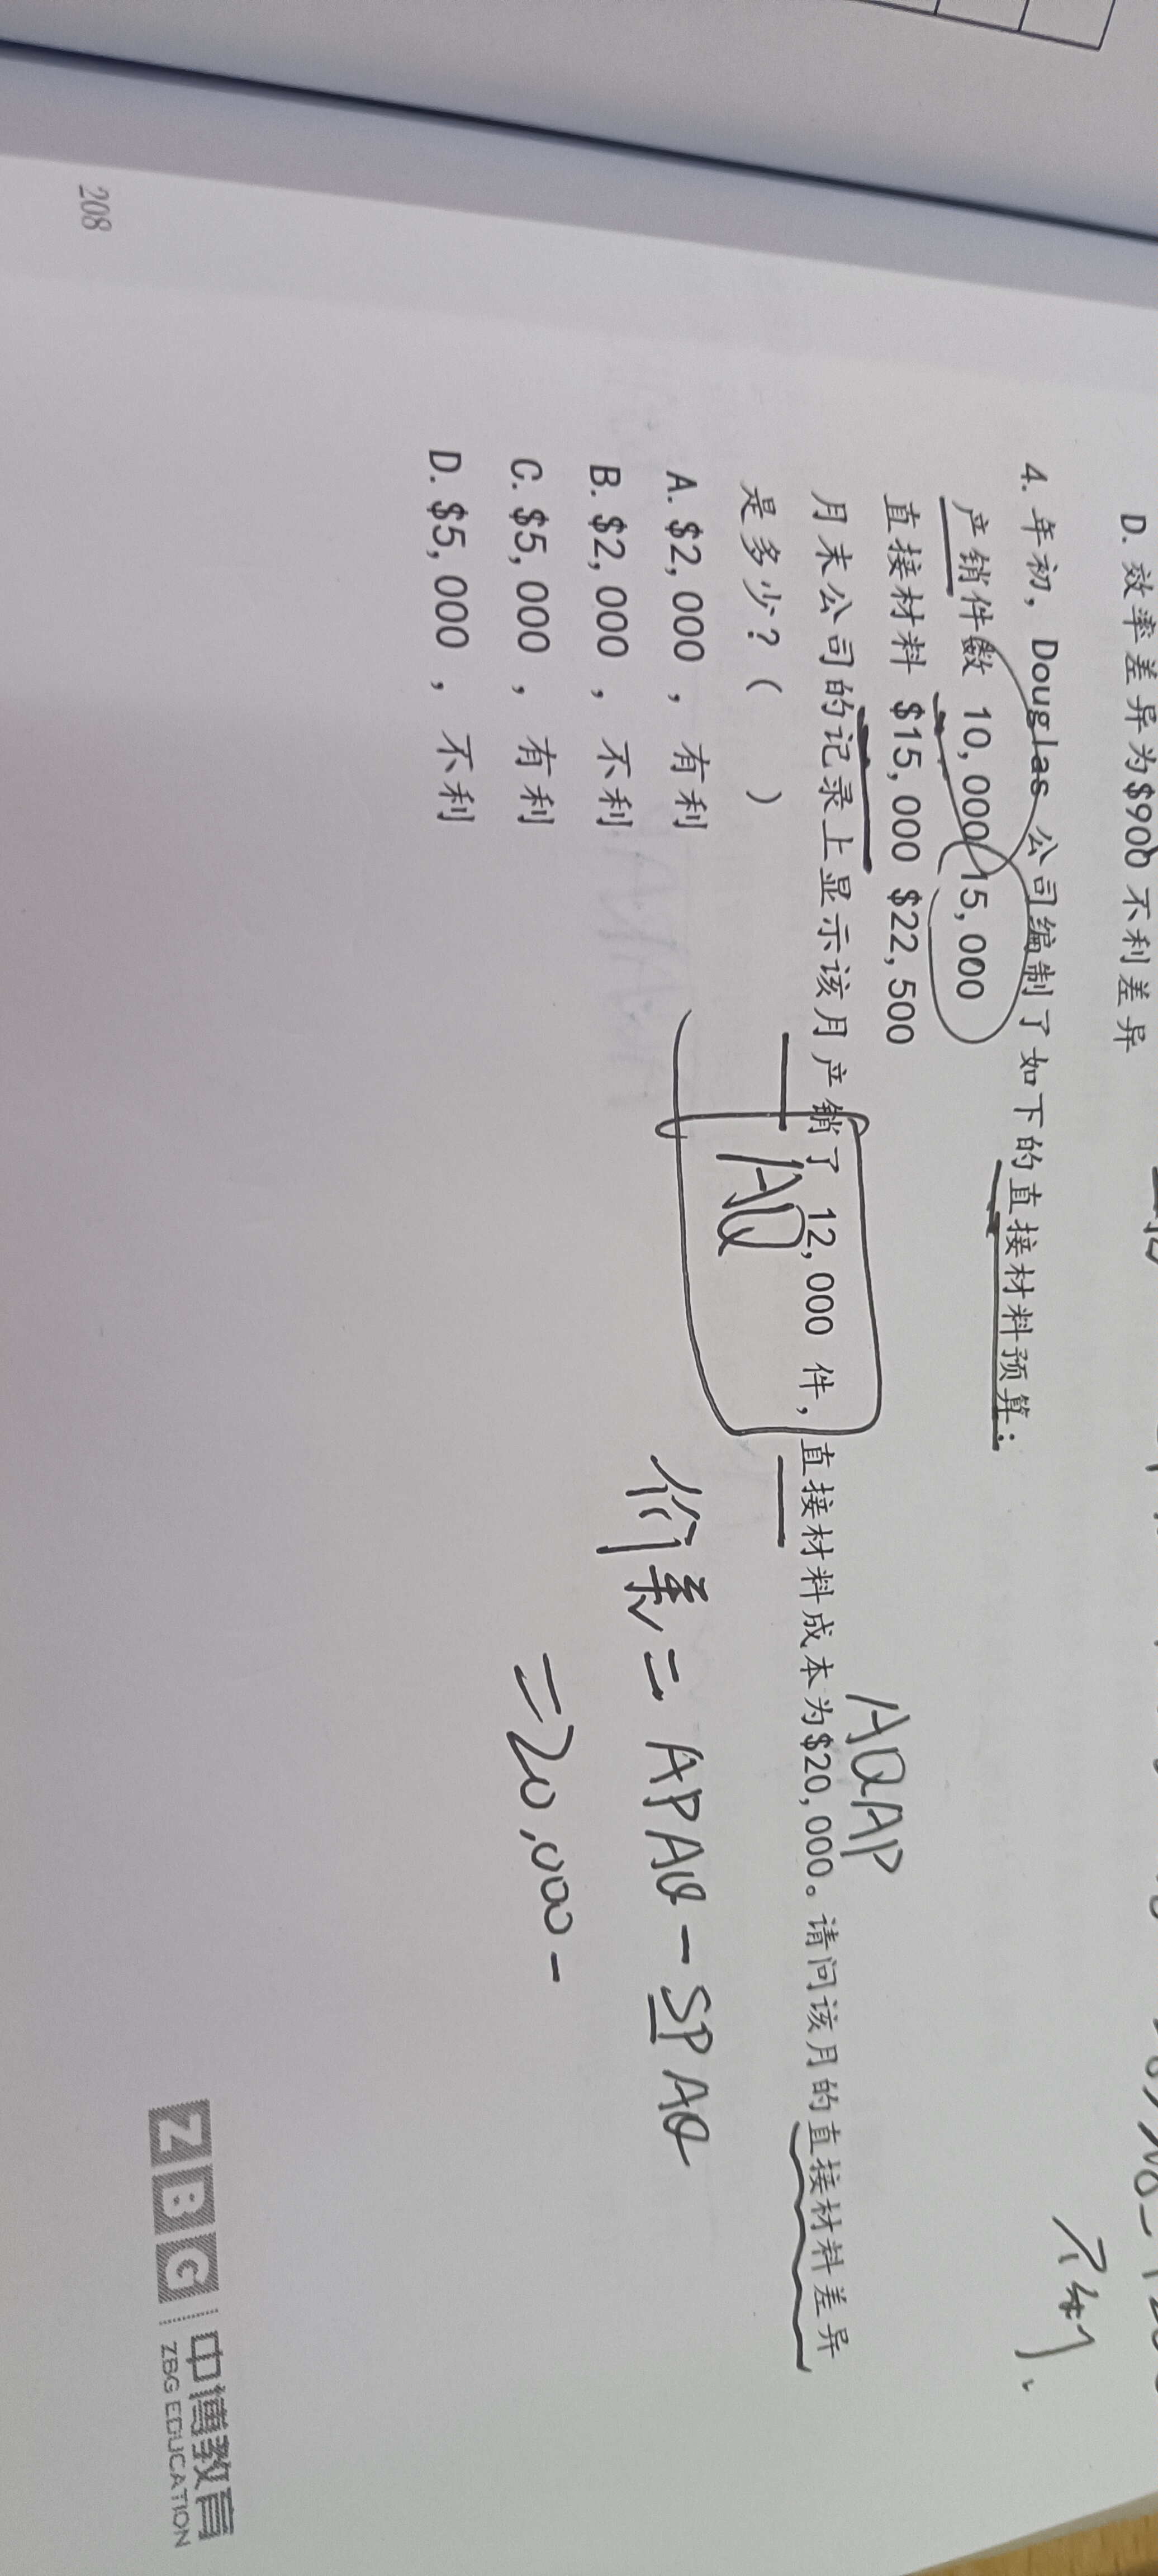 D. 效率差异为$900 不利差异
不利.
4. 年初，Douglas 公司编制了如下的直接材料预算：
产销件数 10,000 15,000
直接材料 $15,000 $22,500
AQAP
月末公司的记录上显示该月产销了 12,000 件，直接材料成本为$20,000。请问该月的直接材料差异
AQ
是多少？（ ）
A. $2,000 ，有利
B. $2,000 ，不利
C. $5,000 ，有利
D. $5,000 ，不利
价差 = APAQ - SPAQ
= 20,000 -
208
ZBG 中博教育
ZBG EDUCATION